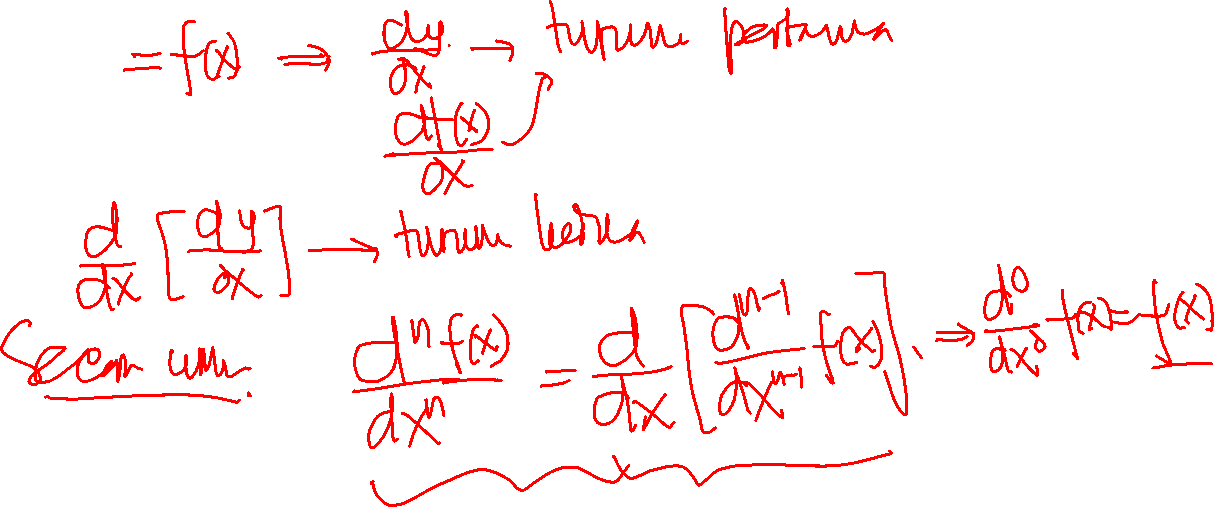 = f(x) ⇒ dy/dx → turunan pertama
df(x)/dx
d/dx [dy/dx] → turunan kedua
Secara umum
dⁿf(x)/dxⁿ = d/dx [dⁿ⁻¹/dxⁿ⁻¹ f(x)]. ⇒ d⁰/dx⁰ f(x) = f(x)